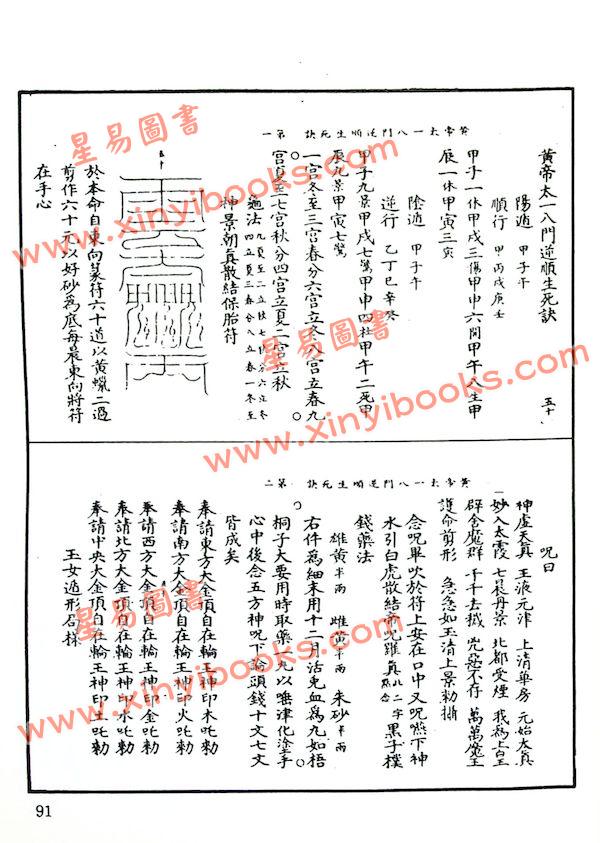 黃帝太一八門逆順生死訣
五十
陽遁 甲子午
順行 甲丙戊庚壬
甲子一休甲戌三傷甲申六開甲午八生甲
辰一休甲寅三亥
陰遁 甲子午
逆行 乙丁己辛癸
甲子九景甲戌七驚甲申四杜甲午二死甲
辰九景甲寅七驚
一宮冬至三宮春分六宮立冬八宮立春九
宮夏至七宮秋分四宮立夏二宮立秋
神景朝真散結保胎符
於本命日東向篆符六十道以黃蠟二過
剪作六十元以好砂為底每晨東向將符
在手心
黃帝太一八門逆順生死訣 第一
黃帝太一八門逆順生死訣 第二
呪曰
神虛太真 王液元津 上清華房 元始太真
妙入太霞 七晨丹景 北都受煙 我為上白王
辟舍魔群 千千去撼 兇惡不存 萬萬魔王
護命剪形 急急如玉清上景勅
念呪畢吹於符上安在口中又呪嚥下神
水引白虎散結帝呪
錢藥法
雄黃半兩 雌黃半兩 朱砂半兩
右件為細末用十二月活兔血為丸如梧
桐子大要用時取藥一丸以唾津化塗手
心中後念五方神呪下諭頭錢十文七文
皆成矣
奉請東方大金頂自在輪王神印木吒勅
奉請南方大金頂自在輪王神印火吒勅
奉請西方大金頂自在輪王神印金吒勅
奉請北方大金頂自在輪王神印水吒勅
奉請中央大金頂自在輪王神印土吒勅
玉女遁形召
91
星易圖書
www.xinyibooks.com
星易圖書
www.xinyibooks.com
星易圖書
www.xinyibooks.com
星易圖書
www.xinyibooks.com